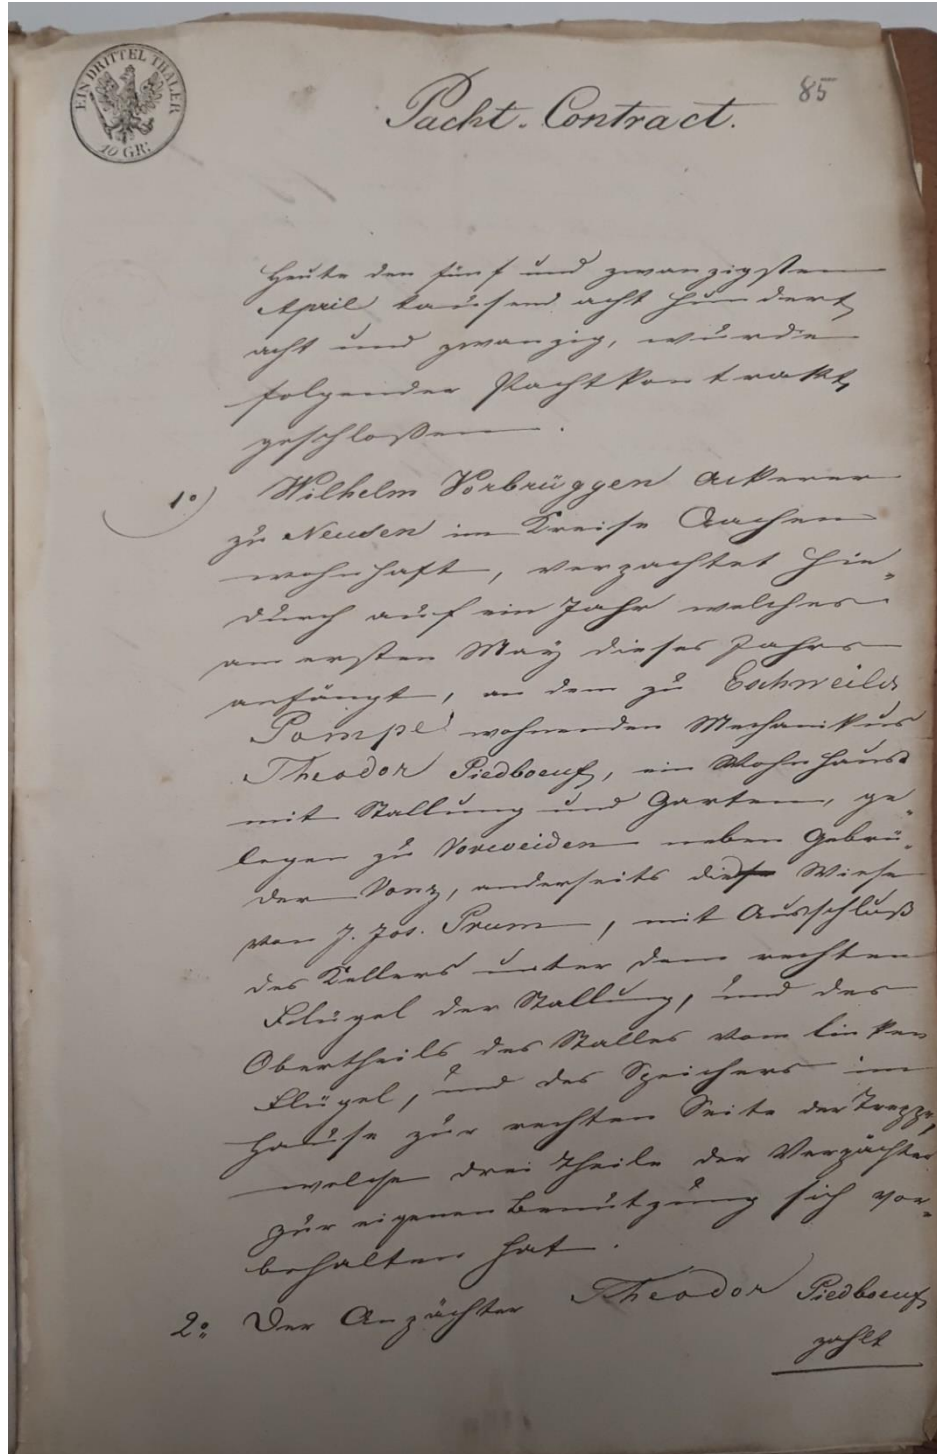 EIN DRITTEL THALER
10 GR:
85
Pacht-Contract.
Heute den fünf und zwanzigsten
April tausend acht hundert
acht und zwanzig, wurde
folgender Pachtkontrakt
geschloßen.
1º) Wilhelm Vorbrüggen Ackerer
zu Neusen im Kreise Aachen
wohnhaft, verpachtet hie„
durch auf ein Jahr welches
am ersten May dieses Jahrs
anfängt, an dem zu Eschweiler
Pompe wohnenden Mechanikus
Theodor Piedboeuf, ein Wohnhaus
mit Stallung und Garten, ge„
legen zu Vorweiden neben Gebrü„
der Vonz, anderseits die Wiese
von J. Jos. Prum, mit Ausschluß
des Kellers unter dem rechten
Flügel der Stallung, und des
Obertheils des Stalles vom linken
Flügel, und des Speichers im
Hause zur rechten Seite der Treppe,
welche drei Theile der Verpächter
zur eigenen Benutzung sich vor„
behalten hat.
2º Der Anpächter Theodor Piedboeuf
zahlt